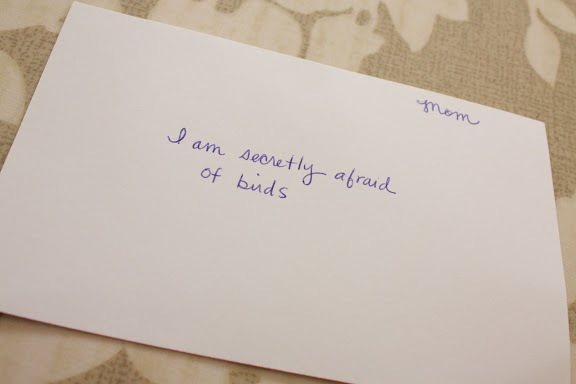 Mom
I am secretly afraid
of birds